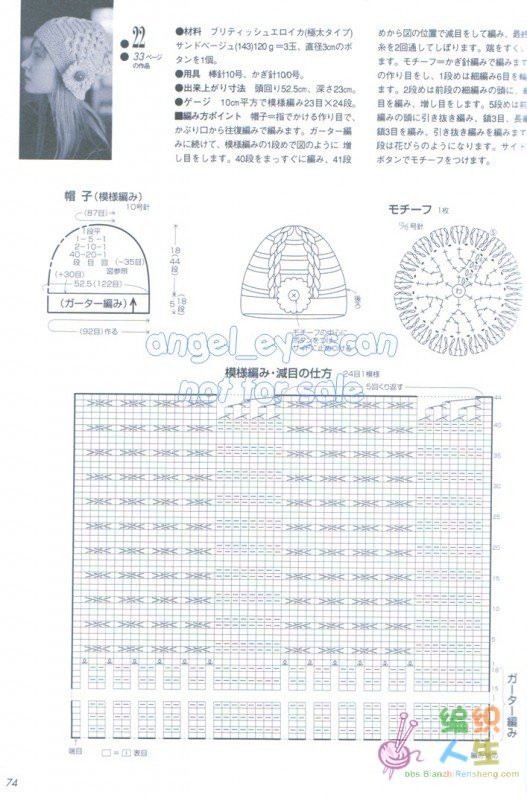 22
33ページ
の作品
●材料 ブリティッシュエロイカ(極太タイプ)
サンドベージュ(143)120g=3玉、直径3cmのボ
タンを1個。
●用具 棒針10号、かぎ針10/0号。
●出来上がり寸法 頭回り52.5cm、深さ23cm。
●ゲージ 10cm平方で模様編み23目×24段。
■編み方ポイント 帽子=指でかける作り目で、
かぶり口から往復編みで編みます。ガーター編
みに続けて、模様編みの1段めで図のように増
し目をします。40段をまっすぐに編み、41段
めから図の位置で減目をして編み、最終
糸を2回通してしぼります。端をすく
ます。モチーフ=かぎ針編みで編みま
の作り目をし、1段めは細編み6目を
ます。2段めは前段の細編みの頭に、
目を編み、増し目をします。5段めは
編みの頭に引き抜き編み、鎖3目、長
鎖3目を編み、引き抜き編みを編みます
段は花びらのようになります。サイド
ボタンでモチーフをつけます。
帽子(模様編み)
10号針
(87目)
1段平
1-5-1
2-10-1
40-20-1
段目回
(-35目)
図参照
(+30目)
52.5(122目)
(ガーター編み)
(92目)作る
18
44段
5
18段
後ろ
モチーフの中心に
モチーフ 1枚
10/0号針
⑤
angel_eyes can
not for sale
模様編み・減目の仕方
24目1模様
5回くり返す
44
ガーター編み
端目
□=｜表目
編織
人生
bbs.BianzhiRensheng.com
74